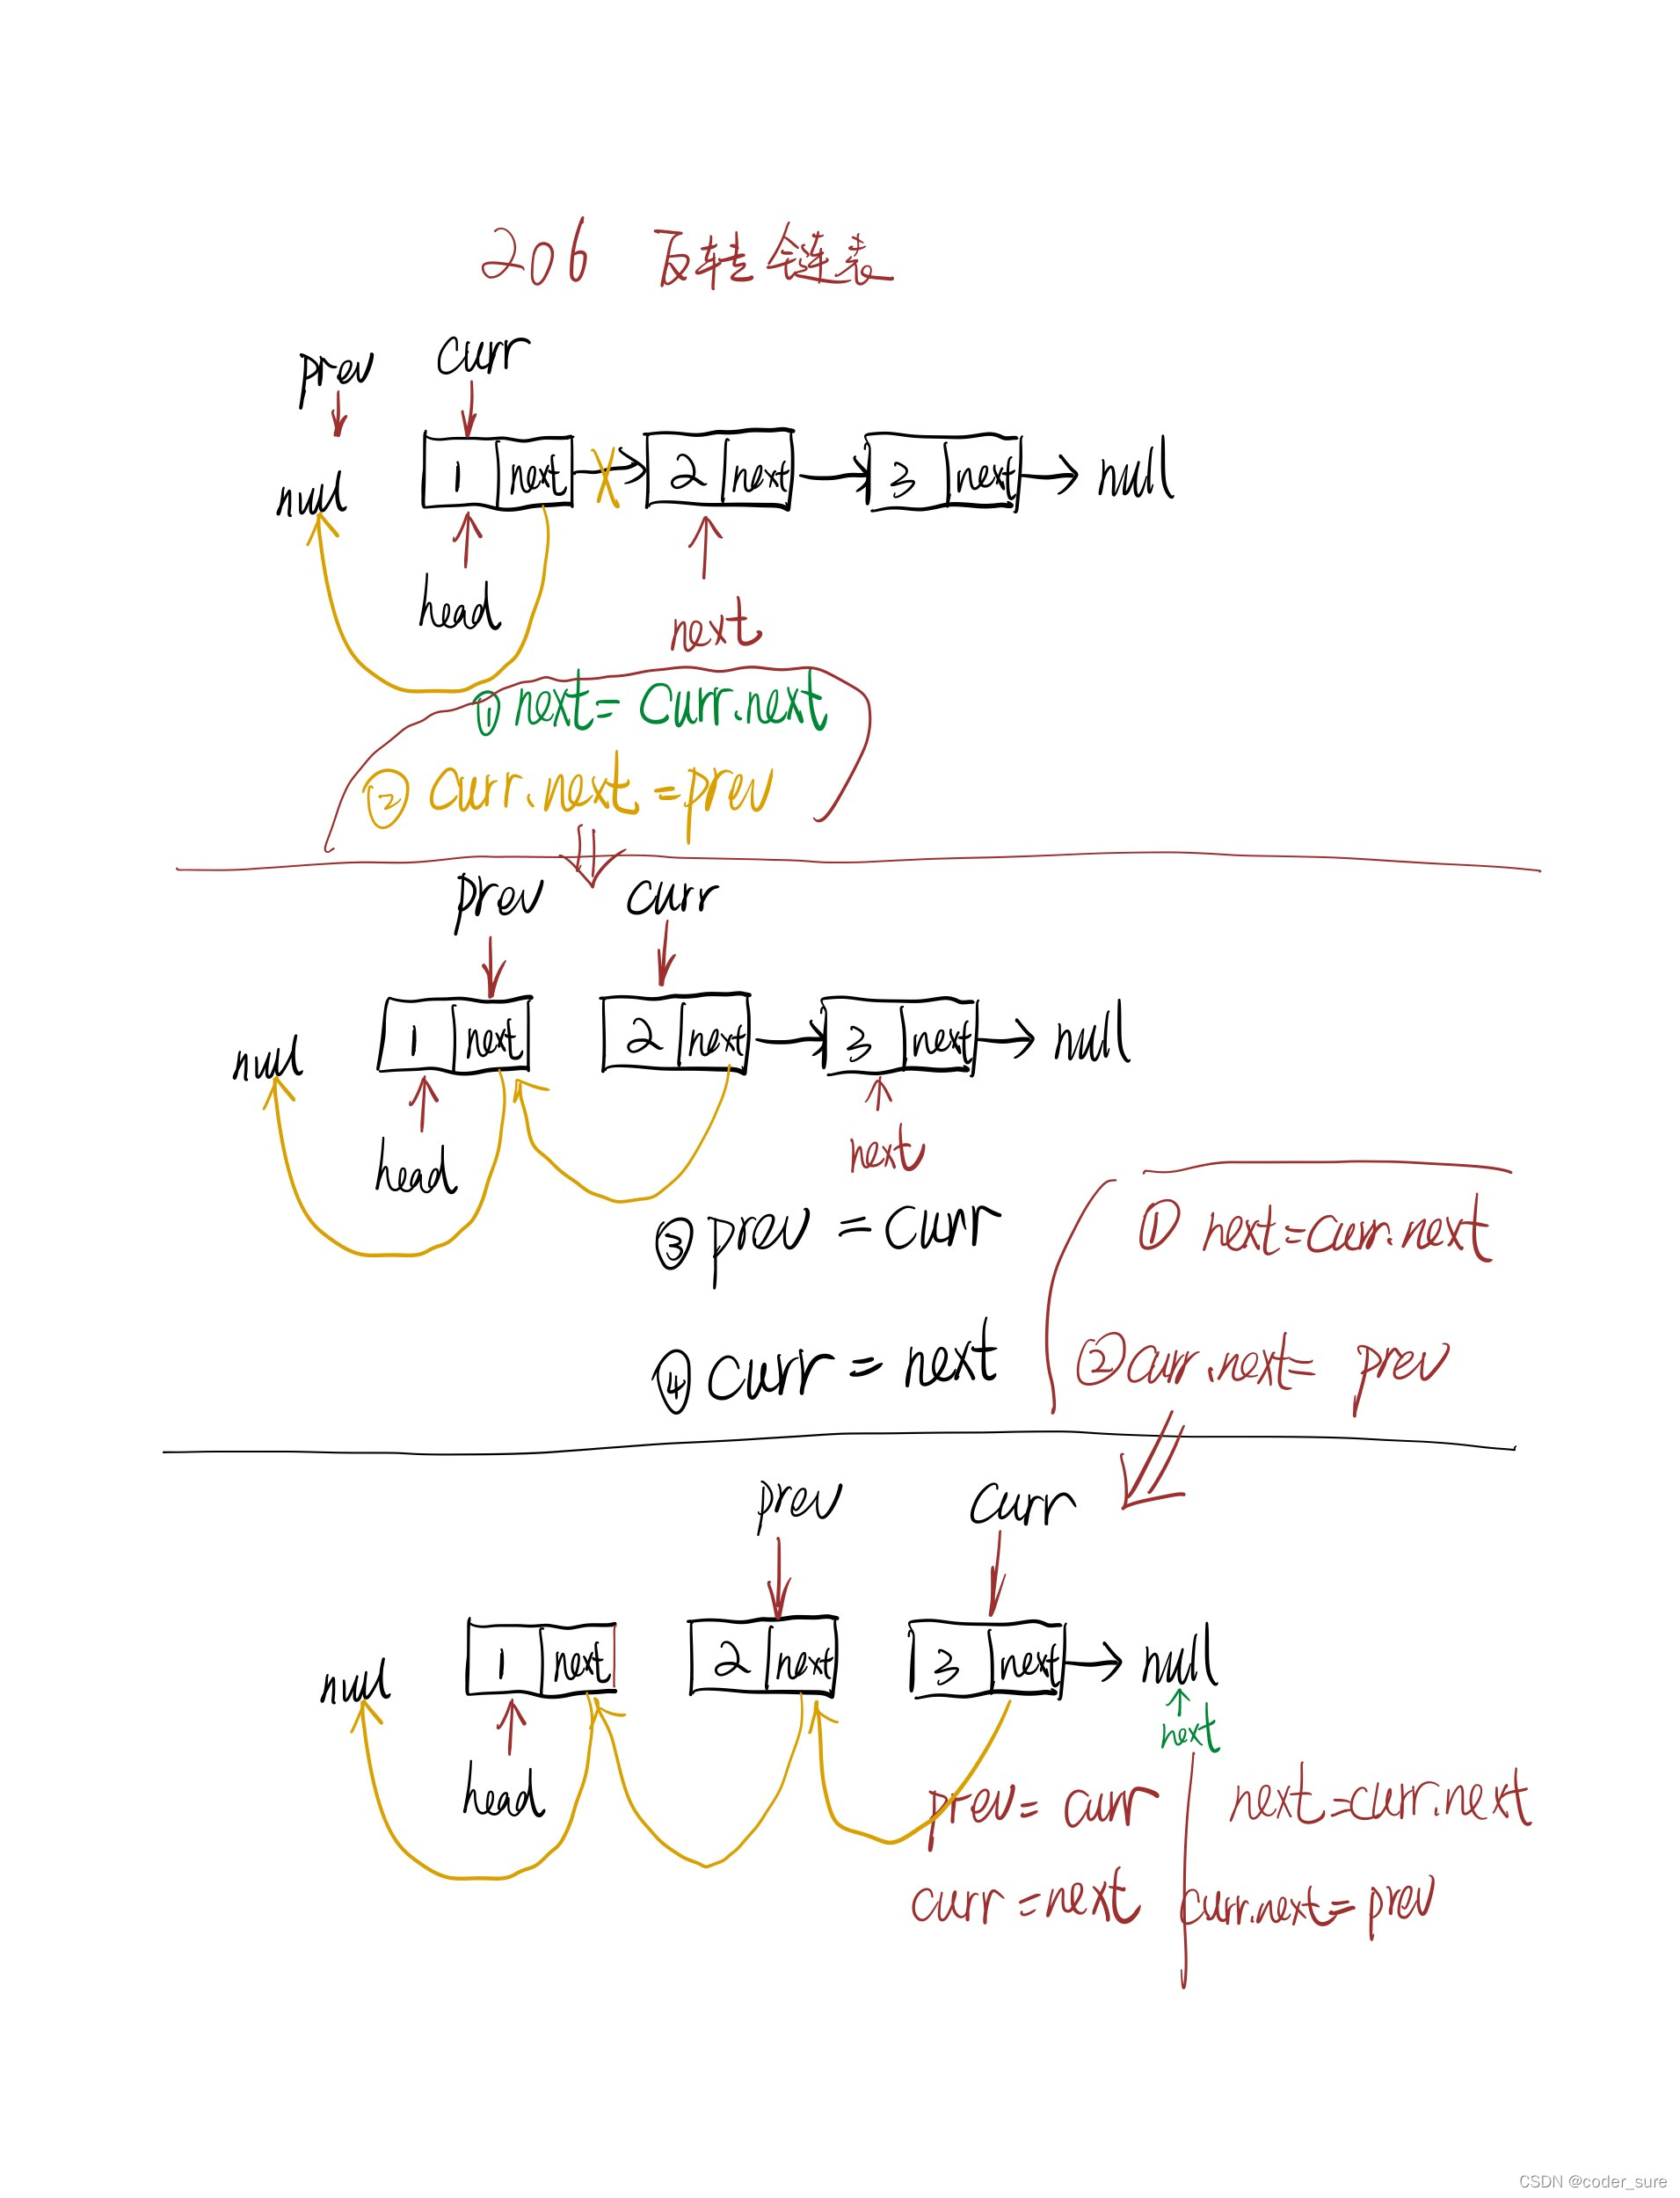 206 反转链表
prev curr
null 1 next 2 next 3 next null
head
next
① next = curr.next
② curr.next = prev
prev curr
null 1 next 2 next 3 next null
head next
③ prev = curr
④ curr = next
① next = curr.next
② curr.next = prev
prev curr
null 1 next 2 next 3 next null
head next
prev = curr next = curr.next
curr = next curr.next = prev
CSDN @coder_sure